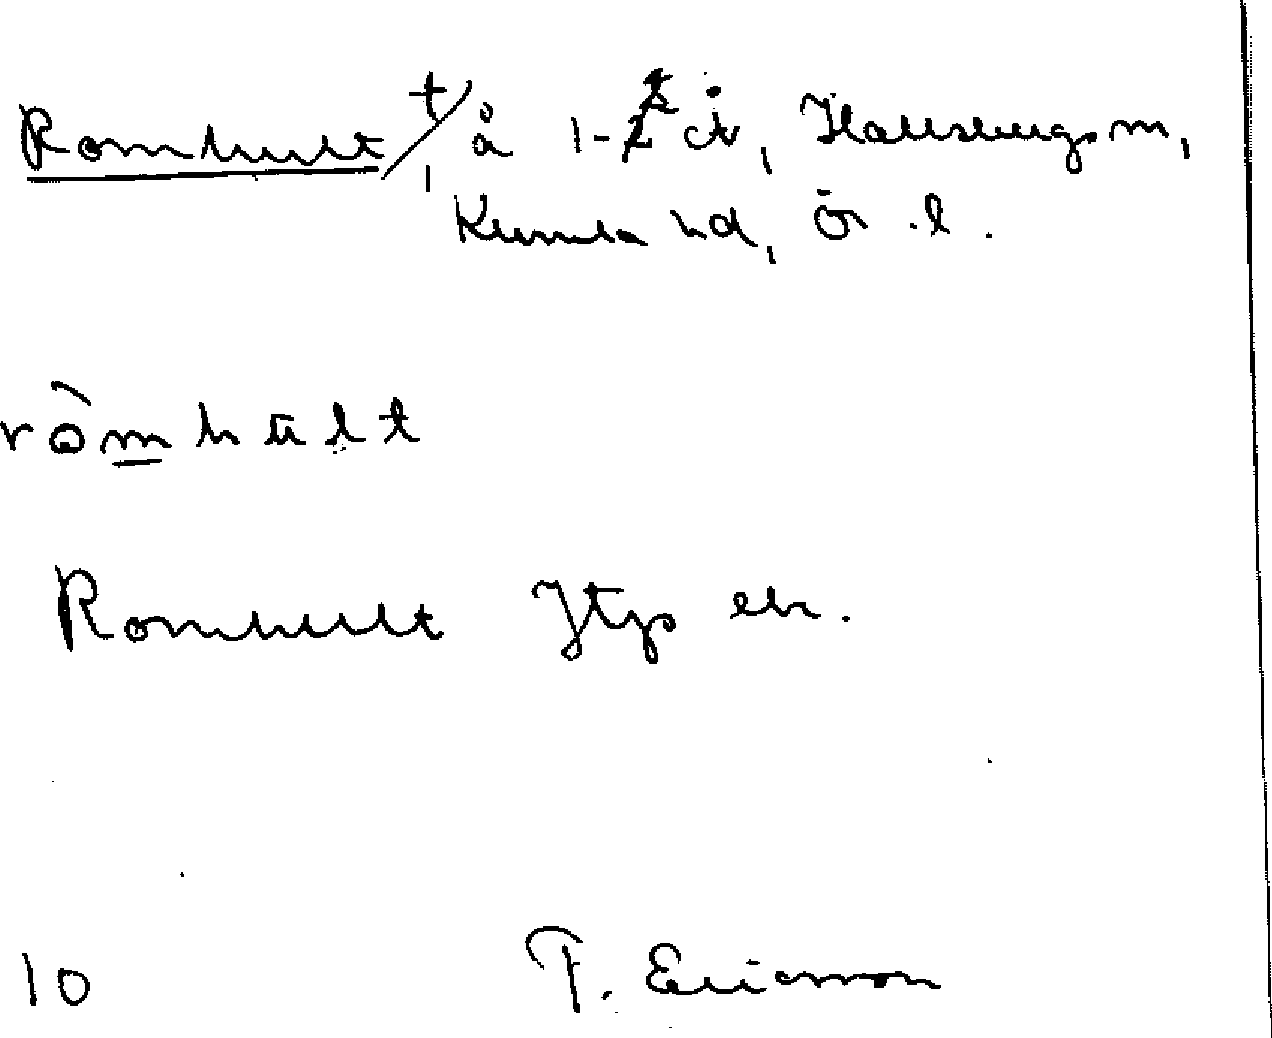 Romhult +/, å 1-2 Hallsbergs m,
Kumla hd, Ör. l.
ròmhult
Romhult Jtp ek.
10 T. Ericsson